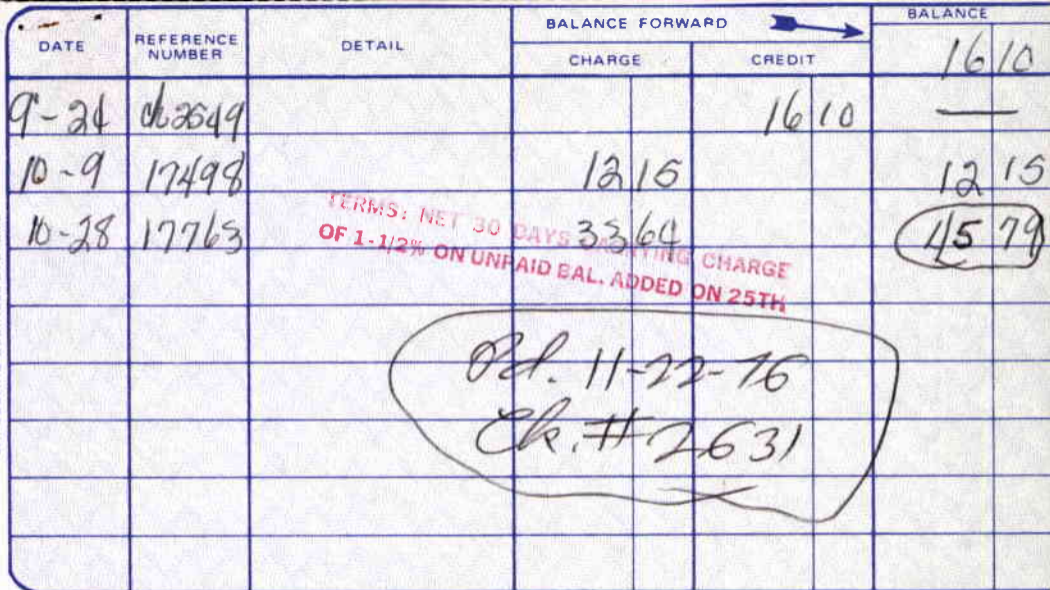 DATE REFERENCE NUMBER DETAIL BALANCE FORWARD CHARGE CREDIT BALANCE
16 10
9-24 ch2549 16 10 —
10-9 17498 12 15 12 15
10-28 17763 33 64 45 79
TERMS: NET 30 DAYS CHARGE
OF 1-1/2% ON UNPAID BAL. ADDED ON 25TH
Pd. 11-22-76
Ck. # 2631